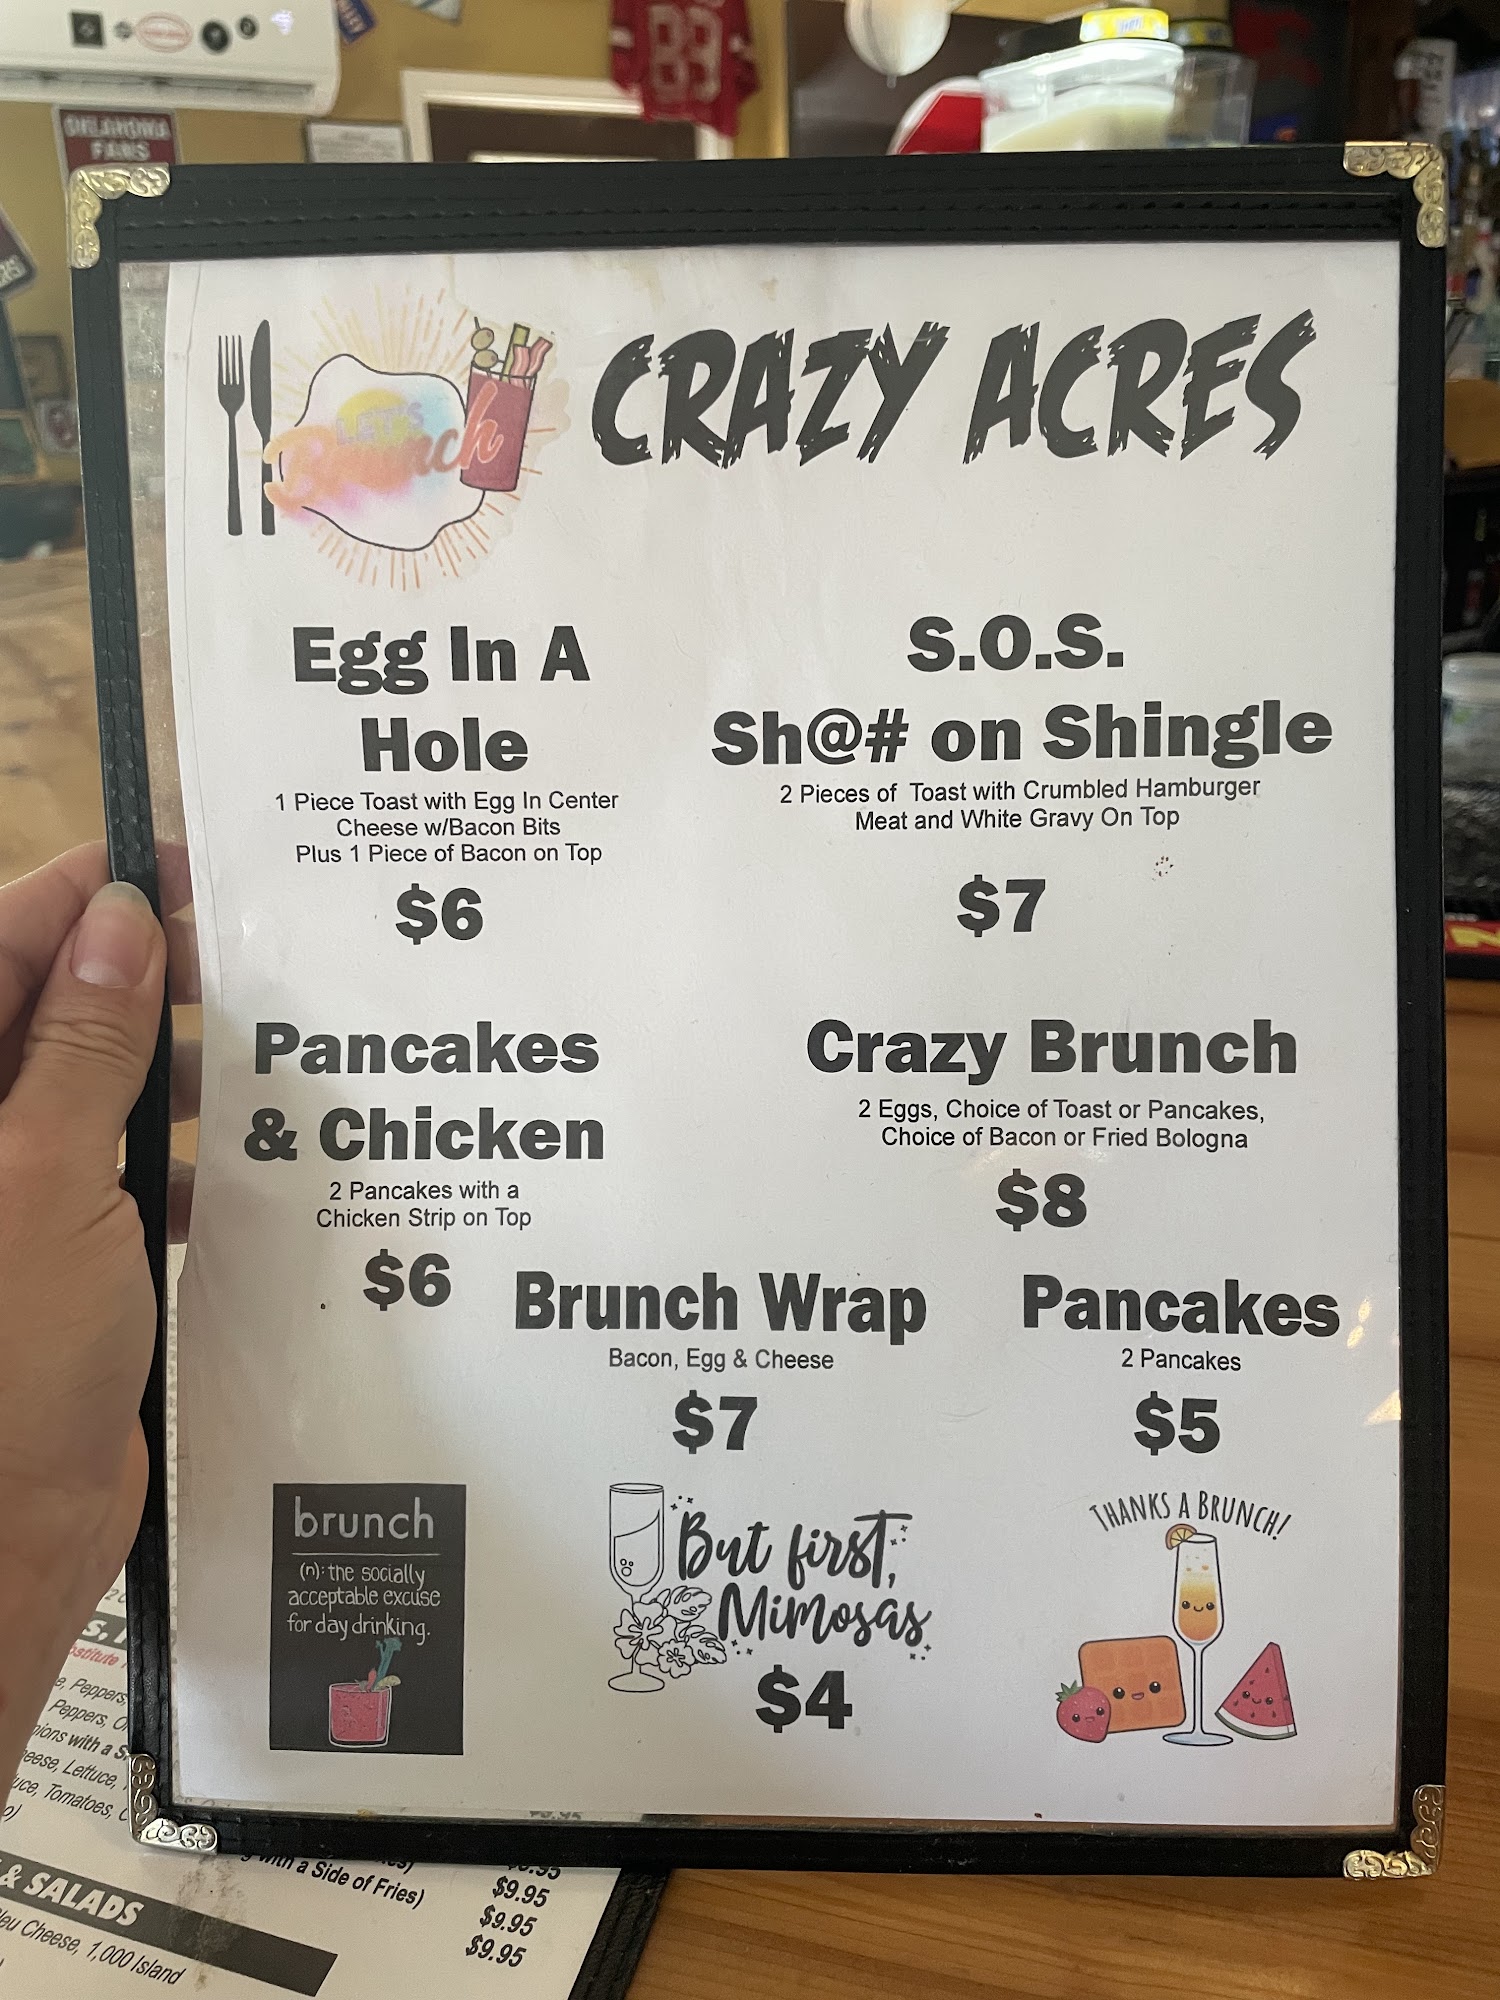 OKLAHOMA
FANS
89
LET'S
Brunch
CRAZY ACRES
Egg In A
Hole
1 Piece Toast with Egg In Center
Cheese w/Bacon Bits
Plus 1 Piece of Bacon on Top
$6
S.O.S.
Sh@# on Shingle
2 Pieces of Toast with Crumbled Hamburger
Meat and White Gravy On Top
$7
Pancakes
& Chicken
2 Pancakes with a
Chicken Strip on Top
$6
Crazy Brunch
2 Eggs, Choice of Toast or Pancakes,
Choice of Bacon or Fried Bologna
$8
Brunch Wrap
Bacon, Egg & Cheese
$7
Pancakes
2 Pancakes
$5
brunch
(n): the socially
acceptable excuse
for day drinking.
But first,
Mimosas
$4
THANKS A BRUNCH!
Peppers,
Peppers,
with a
Lettuce,
Tomatoes,
with a Side of Fries)
$9.95
$9.95
$9.95
& SALADS
Cheese, 1,000 Island